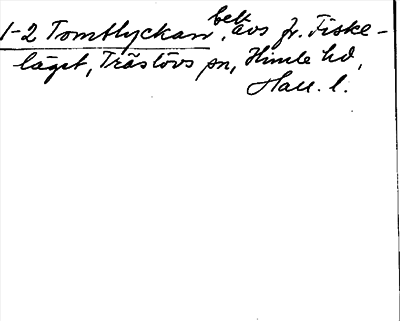 1-2 Tomtlyckan, bek. avs fr. Fiske-
läget, Träslövs sn, Himle hd,
Hall. l.